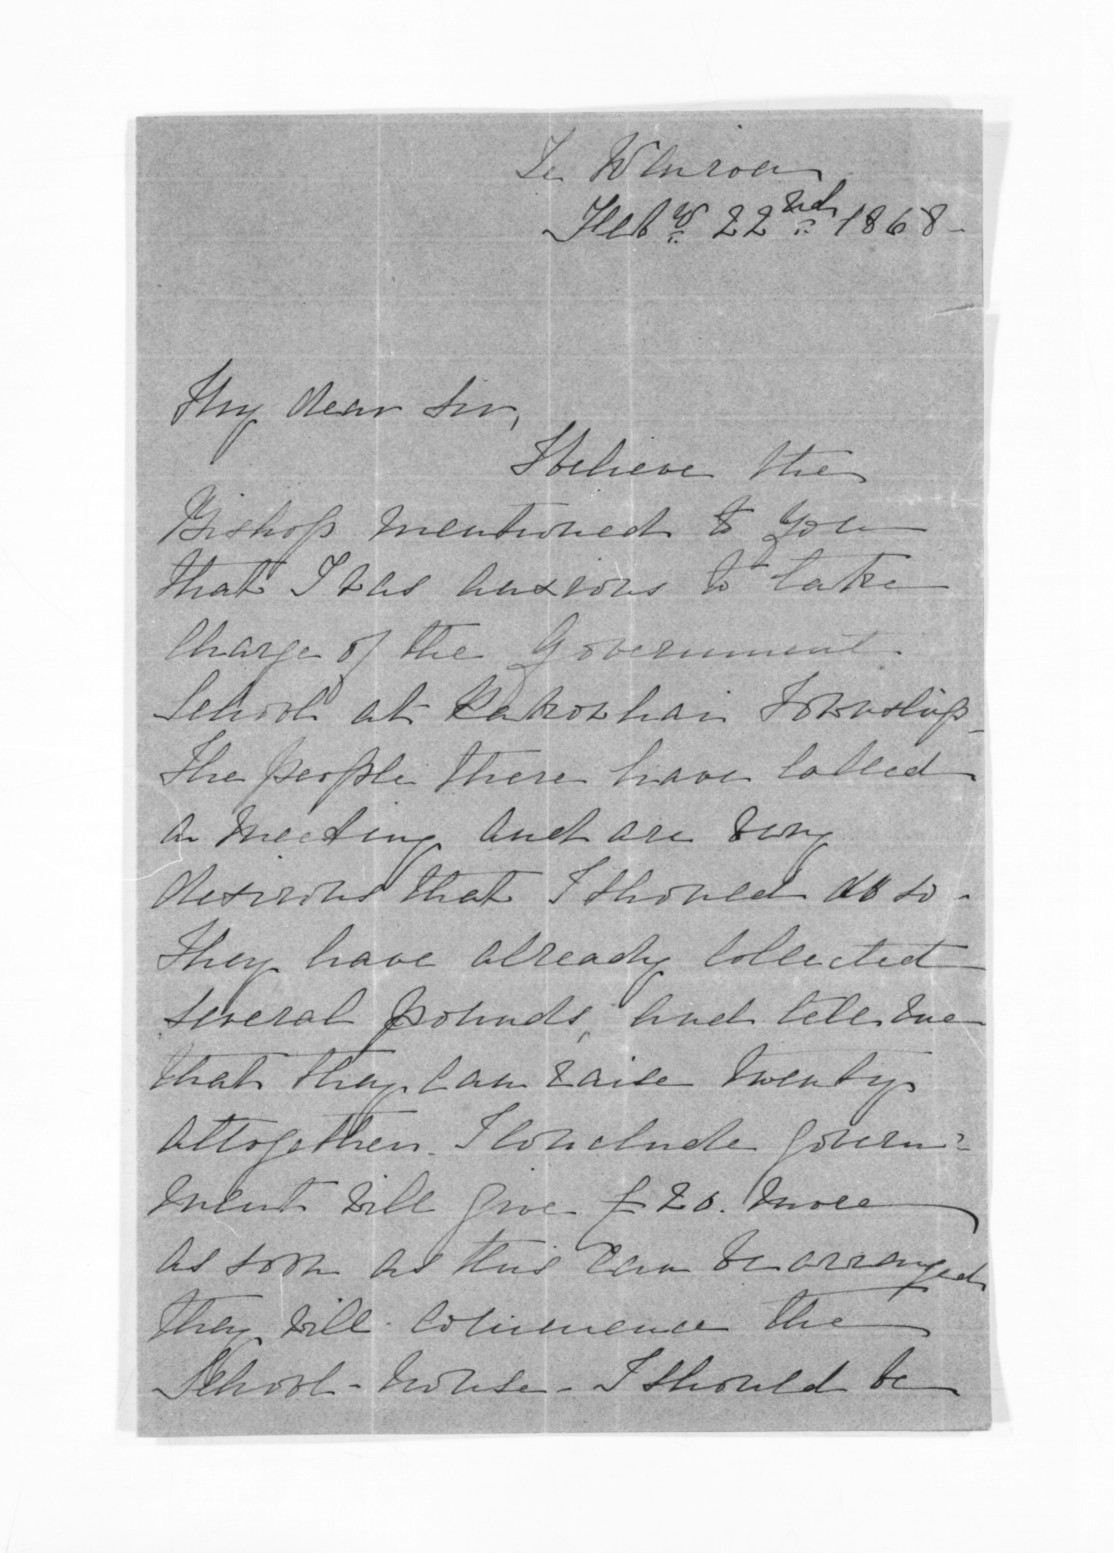 Te Wairoa
Feby 22nd 1868 -
My dear Sir,
I believe the
Bishop mentioned to you
that I was anxious to take
charge of the Government
School at Township -
The people there have called
a meeting and are very
desirous that I should do so -
They have already collected
several pounds, and tell me
that they can raise twenty
altogether. I conclude govern=
ment will give £20. more
as soon as this can be arranged
they will commence the
School-house - I should be